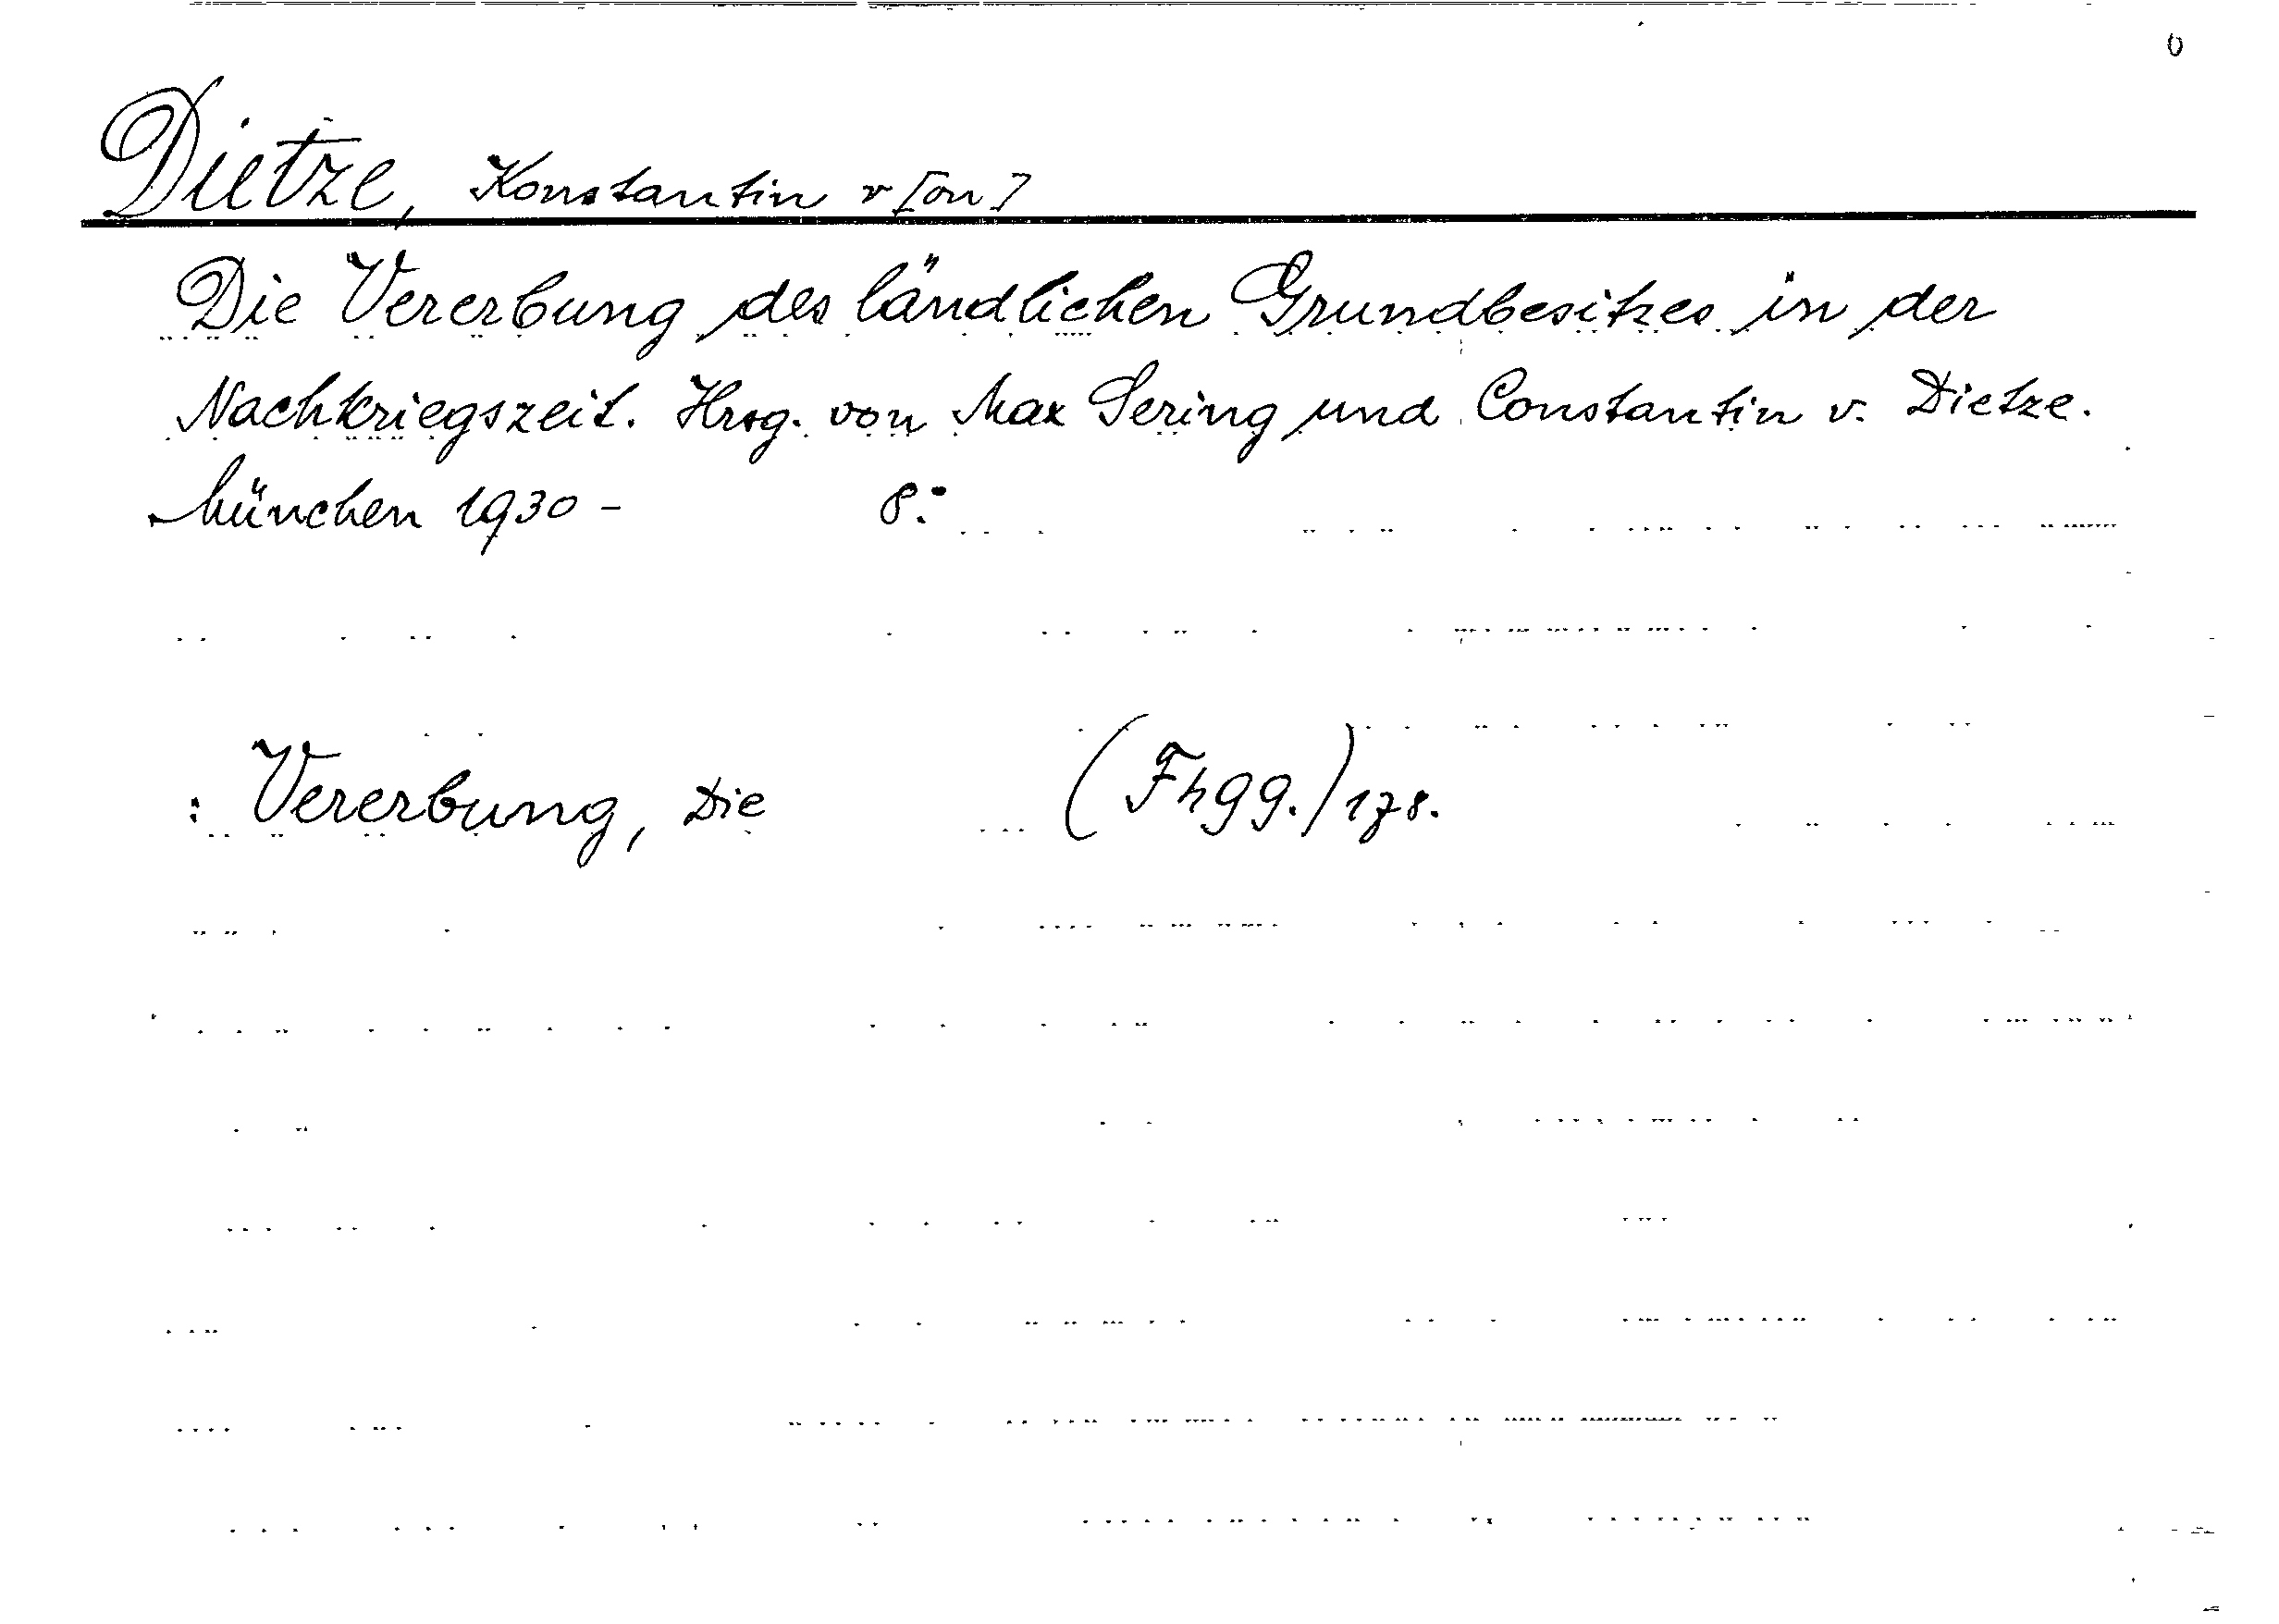 0
Dietze, Konstantin v[on]
Die Vererbung des ländlichen Grundbesitzes in der
Nachkriegszeit. Hrsg. von Max Sering und Constantin v. Dietze.
München 1930 - 8:
: Vererbung, Die (Fh99.) 178.